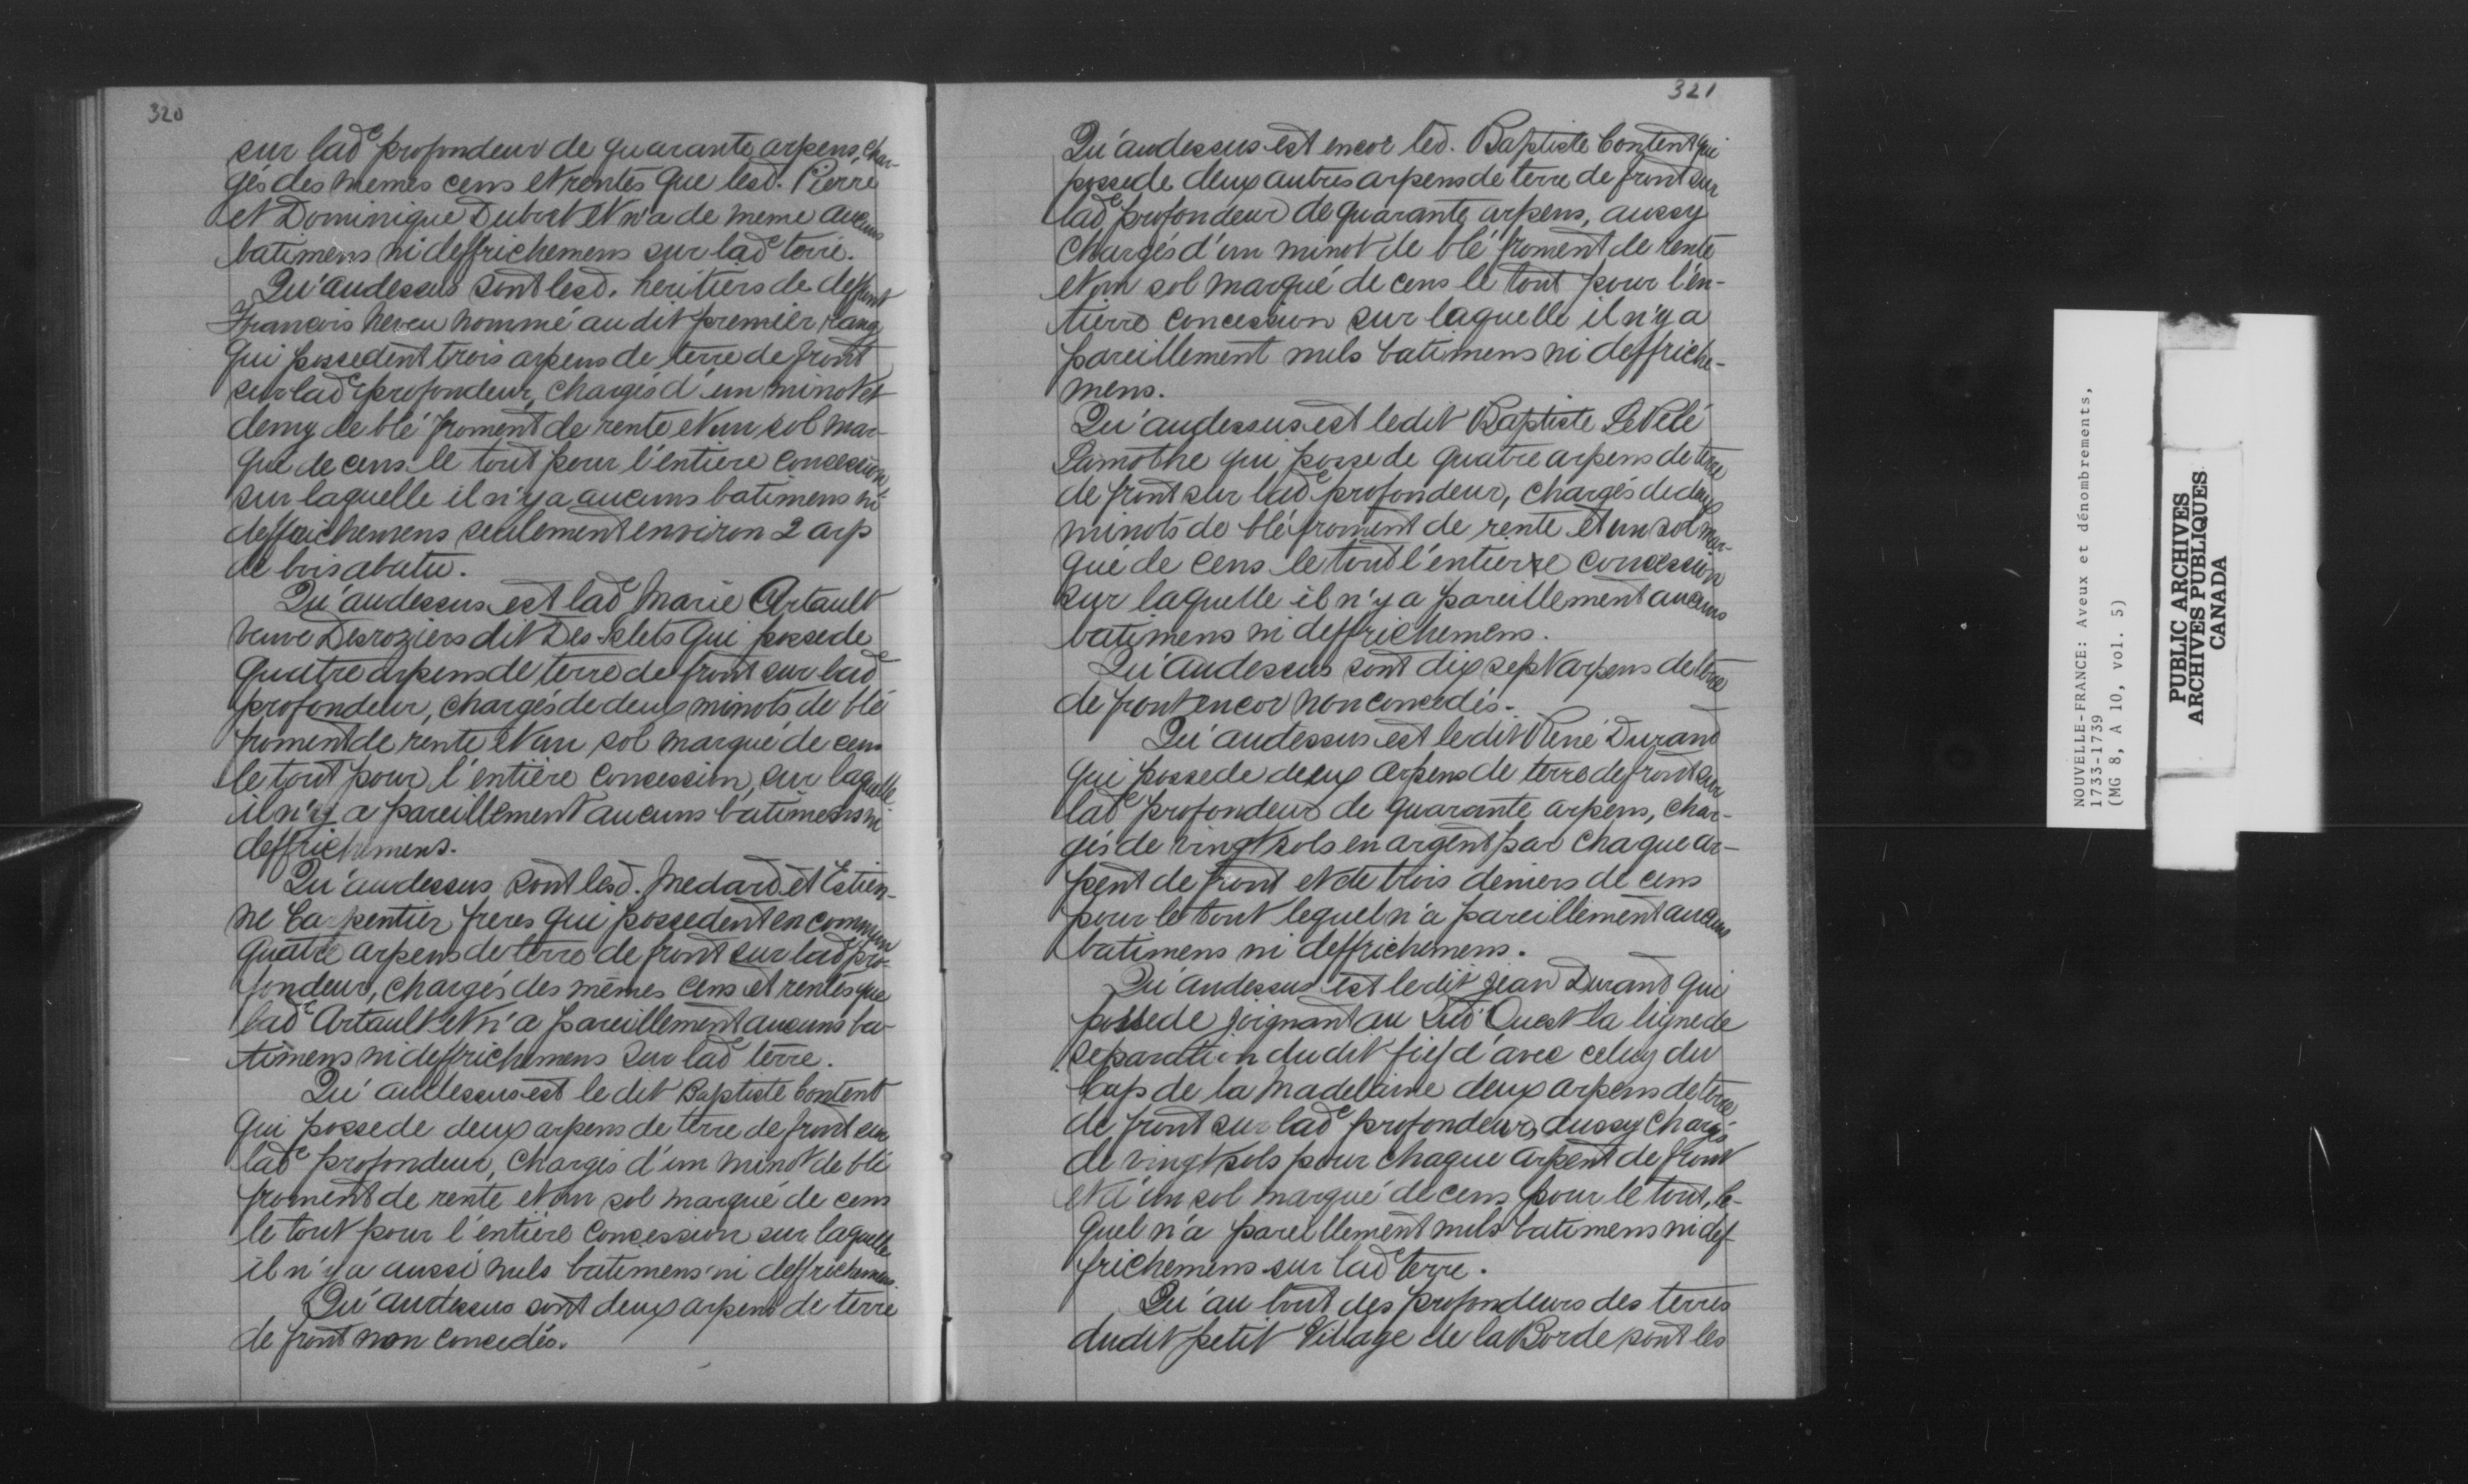 320
sur lad^e profondeur de quarante arpens, char-
gés des memes cens et rentes que lesd. Pierre
et Dominique Dubord et n'a de meme aucuns
batimens ni deffrichemens sur lad^e terre.
Qu'audessus sont lesd. heritiers de deffunt
François neveu nommé au dit premier rang
qui possedent trois arpens de terre de front
sur lad^e profondeur, chargés d'un minot et
demy de blé froment de rente et un sol mar-
qué de cens le tout pour l'entiere concession
sur laquelle il n'y a aucuns batimens ni
deffrichemens seulement environ 2 arp
de bois abatu.
Qu'audessus est lad^e Marie Artault
veuve Desroziers dit Des Islets qui possede
quatre arpens de terre de front sur lad^e
profondeur, chargés de deux minots de blé
froment de rente et un sol marqué de cens
le tout pour l'entière concession, sur laquelle
il n'y a pareillement aucuns batimens ni
deffrichemens.
Qu'audessus sont lesd. Medard et Estien-
ne Carpentier freres qui possedent en commun
quatre arpens de terre de front sur lad^e pro-
fondeur, chargés des mêmes cens et rentes que
lad^e Artault et n'a pareillement aucuns ba-
timens ni deffrichemens sur lad^e terre.
Qu'audessus est le dit Baptiste Content
qui possede deux arpens de terre de front sur
lad^e profondeur, chargés d'un minot de blé
froment de rente et un sol marqué de cens
le tout pour l'entière concession sur laquelle
il n'y a aussi nuls batimens ni deffrichemens.
Qu'audessus sont deux arpens de terre
de front non concedés.
321
Qu'audessus est encor led. Baptiste Content qui
possede deux autres arpens de terre de front sur
lad^e profondeur de quarante arpens, aussy
chargés d'un minot de blé froment de rente
et un sol marqué de cens le tout pour l'en-
tierre concession sur laquelle il n'y a
pareillement nuls batimens ni deffriche-
mens.
Qu'audessus est ledit Baptiste
Lamothe qui possede quatre arpens de terre
de front sur lad^e profondeur, chargés de deux
minots de blé froment de rente et un sol mar-
qué de cens le tout l'entierre concession
sur laquelle il n'y a pareillement aucuns
batimens ni deffrichemens.
Qu'audessus sont dix sept arpens de terre
de front encor non concedés.
Qu'audessus est ledit René Durand
qui possede deux arpens de terre de front sur
lad^e profondeur de quarante arpens, char-
gés de vingt sols en argent par chaque ar-
pent de front et de trois deniers de cens
pour le tout lequel n'a pareillement aucuns
batimens ni deffrichemens.
Qu'audessus est ledit Jean Durand qui
possede joignant au Sud Ouest la ligne de
separation dudit fief d'avec celuy du
Cap de la Madelaine deux arpens de terre
de front sur lad^e profondeur, aussy chargés
de vingt sols pour chaque arpent de front
et d'un sol marqué de cens pour le tout, le-
quel n'a pareillement nuls batimens ni def-
frichemens sur lad^e terre.
Qu'au bout des profondeurs des terres
dudit petit Village de la Borde sont les
NOUVELLE-FRANCE: Aveux et dénombrements,
1733-1739
(MG 8, A 10, vol. 5)
PUBLIC ARCHIVES
ARCHIVES PUBLIQUES
CANADA